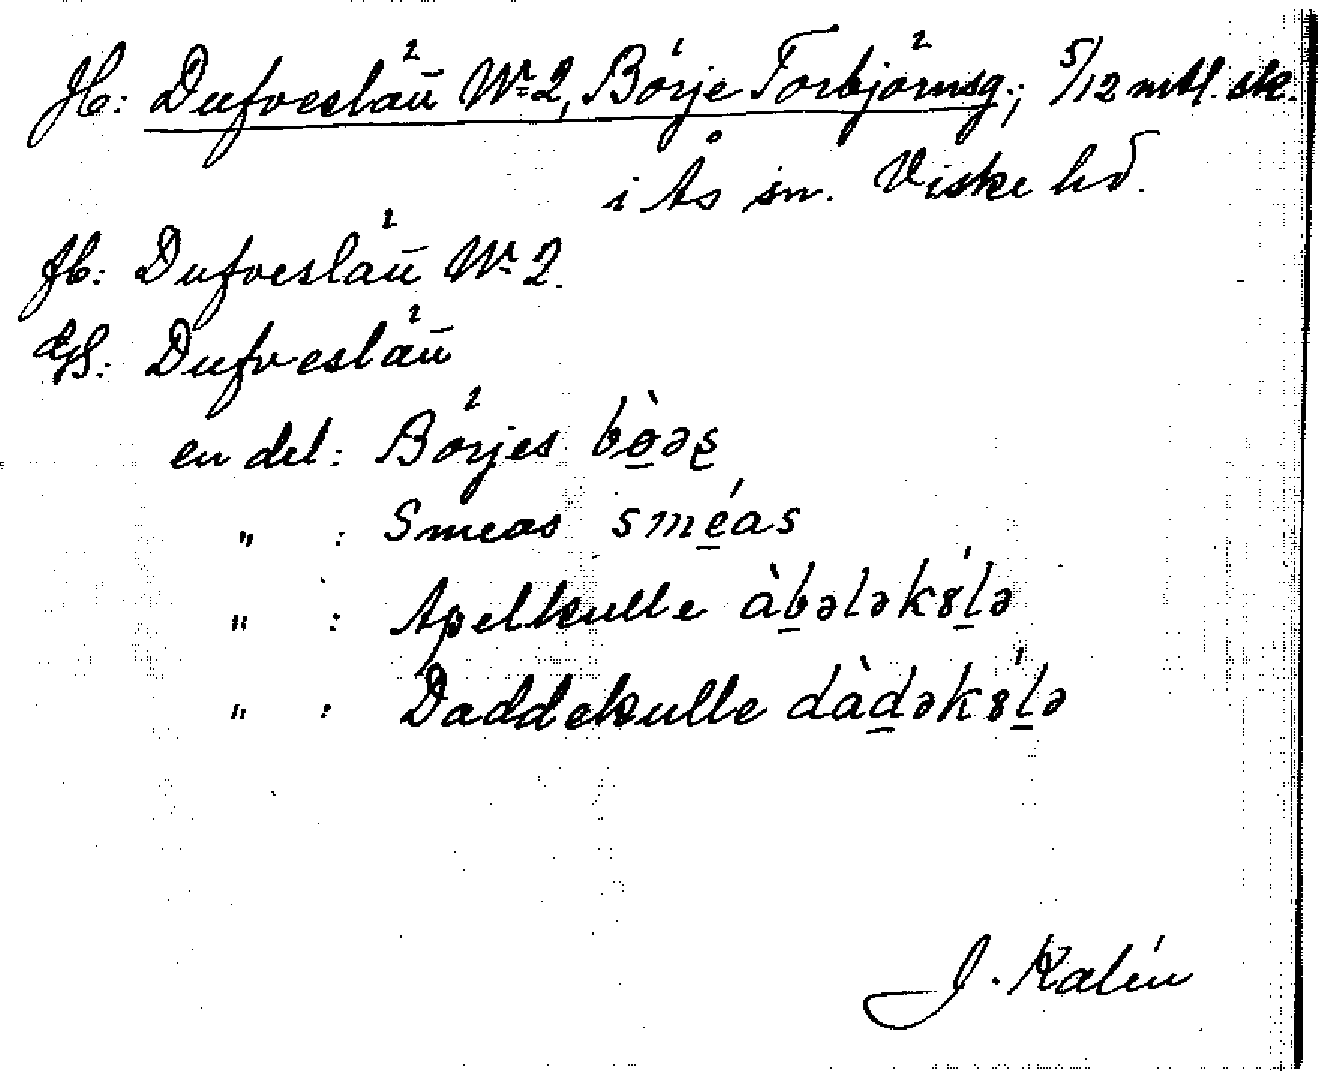 Jb: Dufveslän̄ Nr 2, Börje Torbjörnsg.; 5/12 mtl. sk.
i Ås sn. Viske hd.
Jb: Dufveslän̄ Nr 2.
GS: Dufveslän̄
en del: Börjes bò̱əs̱
" : Smeas smé̱as
" : Apelkulle àḇələk8́ḻə
" : Daddekulle dàḏək8́ḻə
J. Kalén